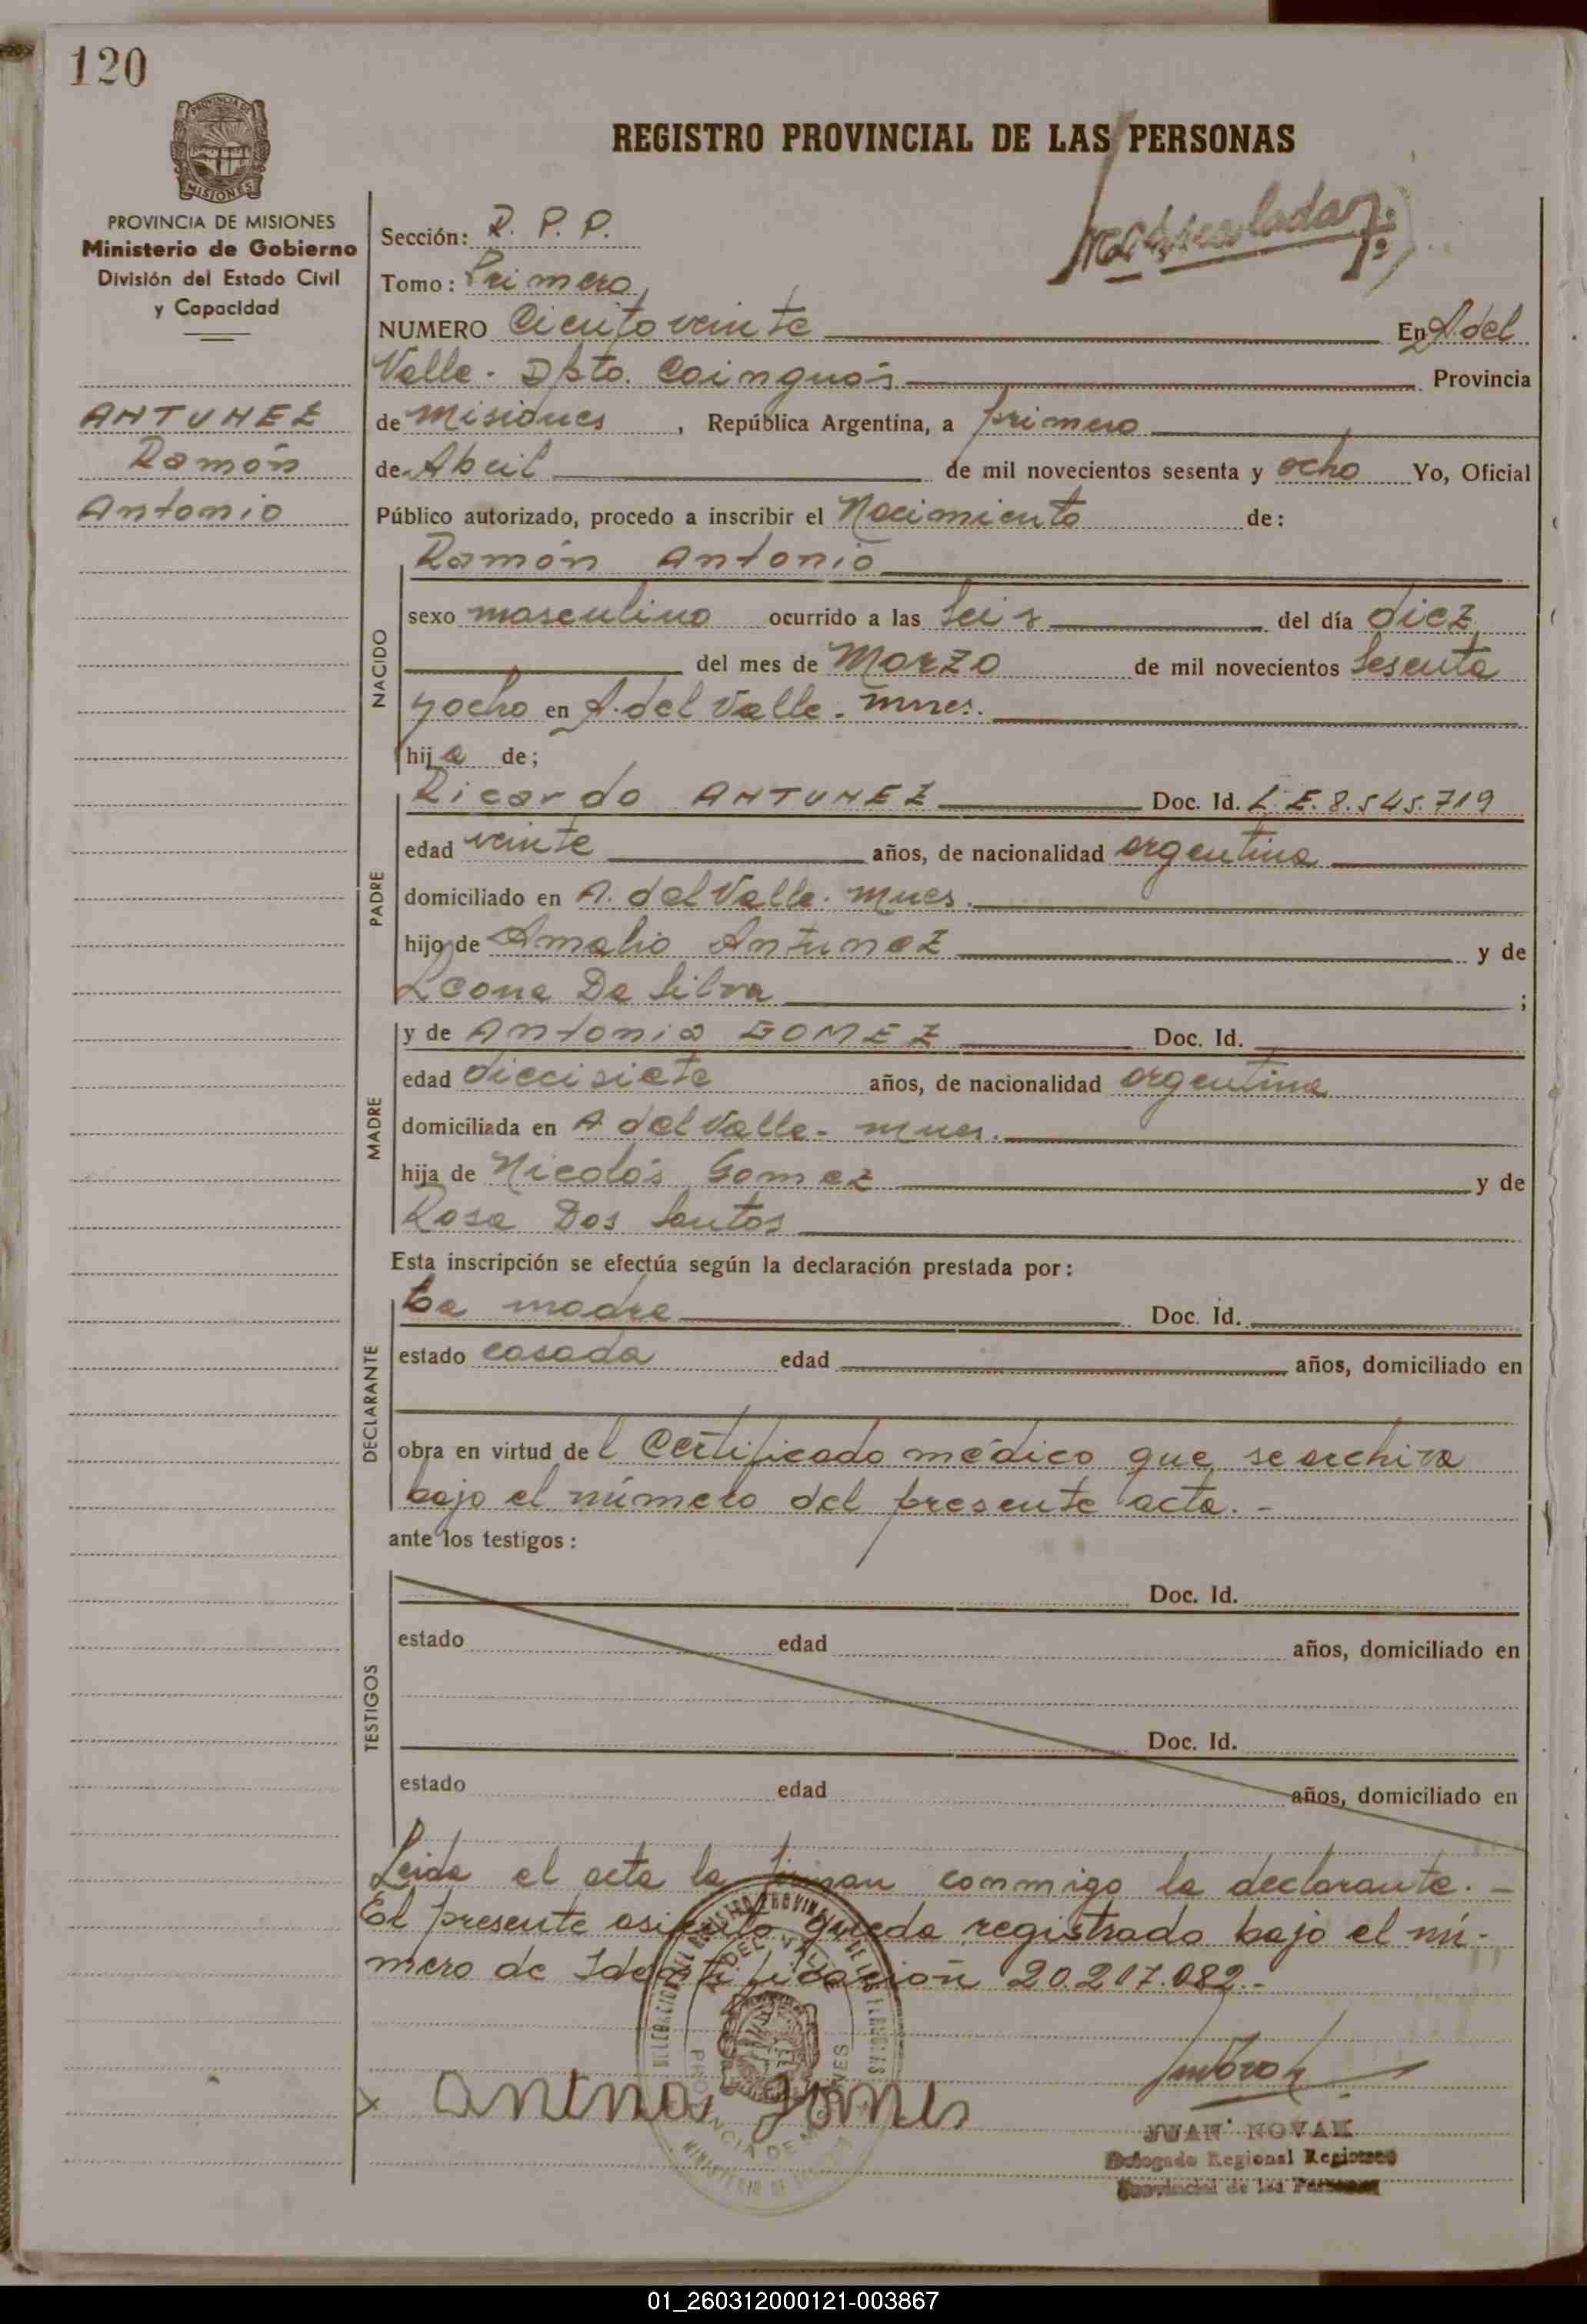 120
PROVINCIA DE
MISIONES
PROVINCIA DE MISIONES
Ministerio de Gobierno
División del Estado Civil
y Capacidad
ANTUNEZ
Ramón
Antonio
REGISTRO PROVINCIAL DE LAS PERSONAS
Sección: R. P. P.
Tomo: Primero
NUMERO Ciento veinte En A. del
Valle. Dpto. Cainguás Provincia
de Misiones, República Argentina, a primero
de Abril de mil novecientos sesenta y ocho Yo, Oficial
Público autorizado, procedo a inscribir el Nacimiento de:
Ramón Antonio
NACIDO
sexo masculino ocurrido a las seis del día diez
del mes de Marzo de mil novecientos sesenta
y ocho en A. del Valle. Mnes.
hijo de;
PADRE
Ricardo ANTUNEZ Doc. Id. L.E. 8.545.719
edad veinte años, de nacionalidad argentina
domiciliado en A. del Valle. Mnes.
hijo de Amalio Antunez y de
Leona Da Silva ;
MADRE
y de Antonia GOMEZ Doc. Id.
edad diecisiete años, de nacionalidad argentina
domiciliada en A del Valle- Mnes.
hija de Nicolás Gomez y de
Rosa Dos Santos
Esta inscripción se efectúa según la declaración prestada por:
DECLARANTE
La madre Doc. Id.
estado casada edad años, domiciliado en
obra en virtud del Certificado médico que se archiva
bajo el número del presente acta. -
ante los testigos:
TESTIGOS
Doc. Id.
estado edad años, domiciliado en
Doc. Id.
estado edad años, domiciliado en
Leida el acta la firman conmigo la declarante. -
El presente asiento queda registrado bajo el nú-
mero de Identificación 20.217.082.-
JUAN NOVAK
Delegado Regional Registro
Provincial de las Personas
01_260312000121-003867